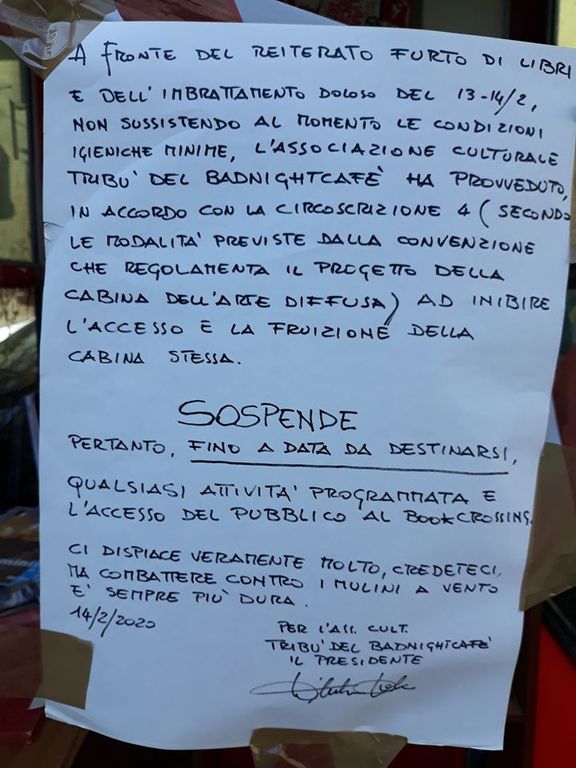 A FRONTE DEL REITERATO FURTO DI LIBRI
E DELL'IMBRATTAMENTO DOLOSO DEL 13-14/2,
NON SUSSISTENDO AL MOMENTO LE CONDIZIONI
IGIENICHE MINIME, L'ASSOCIAZIONE CULTURALE
TRIBU' DEL BADNIGHTCAFÈ HA PROVVEDUTO,
IN ACCORDO CON LA CIRCOSCRIZIONE 4 (SECONDO
LE MODALITA' PREVISTE DALLA CONVENZIONE
CHE REGOLAMENTA IL PROGETTO DELLA
CABINA DELL'ARTE DIFFUSA) AD INIBIRE
L'ACCESSO E LA FRUIZIONE DELLA
CABINA STESSA.
SOSPENDE
PERTANTO, FINO A DATA DA DESTINARSI,
QUALSIASI ATTIVITA' PROGRAMMATA E
L'ACCESSO DEL PUBBLICO AL BOOKCROSSING.
CI DISPIACE VERAMENTE MOLTO, CREDETECI,
MA COMBATTERE CONTRO I MULINI A VENTO
E' SEMPRE PIÙ DURA.
14/2/2020
PER L'ASS. CULT.
TRIBU' DEL BADNIGHTCAFÈ
IL PRESIDENTE